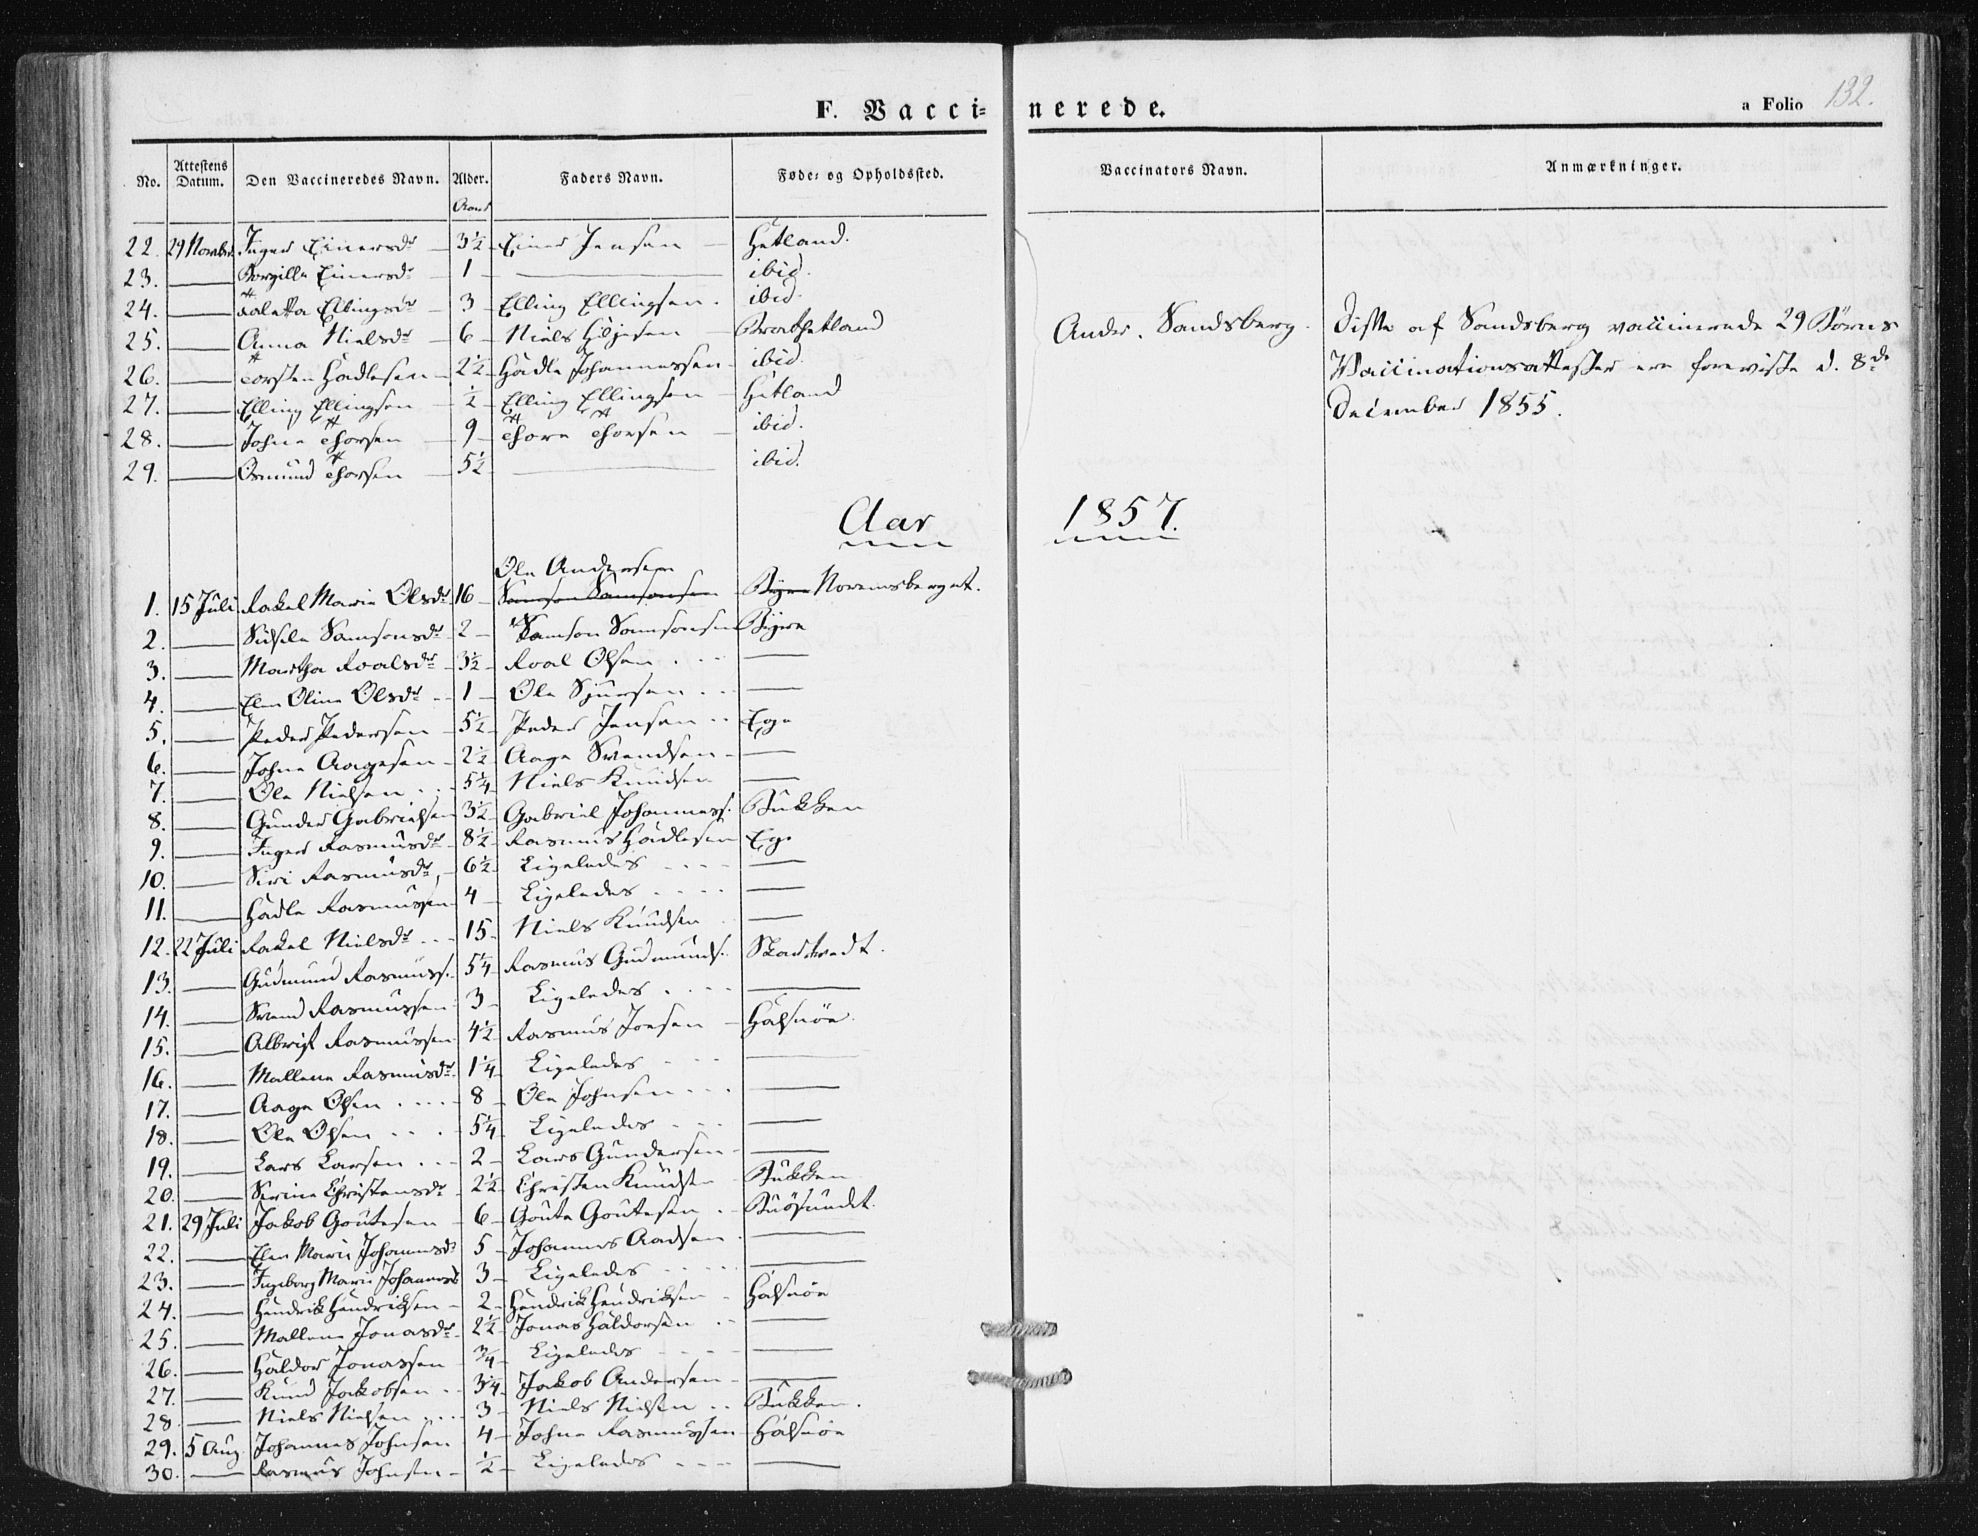 F. Vaccinerede.
a Folio 132.
No. Attestens Datum. Den Vaccineredes Navn. Alder. Faders Navn. Føde- og Opholdssted. Vaccinators Navn. Anmærkninger.
Aar
22. 29 Novbr. Inger Einersdr 3½ Einer Jensen Hetland.
23. — Einersdr 1 — ibid.
24. — Ellingsdr 3 Elling Ellingsen. ibid.
25. — Anna Nielsdr 6 Niels Brathetland
Ander. Sandsberg. Disse af Sandsberg vaccinerede 29 Børns
26. — Torsten Hadlesen 2½ Hadle Johannessen ibid.
Vaccinationsattester ere foreviste d. 8de
27. — Elling Ellingsen ½ Elling Ellingsen Hetland
December 1855.
28. — Johne Thorsen 9 Thore Thorsen ibid.
29. — Osmund Thorsen 5½ — ibid.
Aar 1857.
Ole Andersen
1. 15 Juli Rakel Marie Olsdr 16 Samson Samsonsen Bjere Noremsberget.
2. — Sidsele Samsonsdr 2 Samson Samsonsen
3. — Martha Roalsdr 3½ Roal Olsen —
4. — Elen Oline Olsdr 1 Ole Sjursen —
5. — Peder Pedersen 5½ Peder Jensen Ege
6. — Johne Aagesen 2½ Aage Svendsen —
7. — Ole Nielsen 5¼ Niels Knudsen —
8. — Gunder Gabrielsen 3½ Gabriel Johanness. Bukken
9. — Inger Rasmusdr 8½ Rasmus Hadlesen Ege
10. — Siri Rasmusdr 6½ Ligeledes —
11. — Hadle Rasmussen 4 Ligeledes —
12. 22 Juli Rakel Nielsdr 15 Niels Knudsen —
13. — Gudmund Rasmuss. 5¼ Rasmus Gudmunds.
14. — Svend Rasmussen 3 Ligeledes —
15. — Albrigt Rasmussen 4½ Rasmus Joesen Halsnøe.
16. — Mallene Rasmusdr 1¼ Ligeledes —
17. — Aage Olsen 8 Ole Johnsen —
18. — Ole Olsen 5¼ Ligeledes —
19. — Lars Larsen 2 Lars Gundersen —
20. — Serine Christensdr 2½ Christen Knudsen Bukken
21. 29 Juli Jakob Goutesen 6 Goute Goutesen Buøsundt.
22. — Elen Marie Johannesdr 5 Johannes Aadsen —
23. — Ingeborg Marie Johannesd 3 Ligeledes —
24. — Hendrik Hendriksen 2 Hendrik Hendriksen Halsnøe
25. — Mallene Jonasdr 2½ Jonas Haldorsen —
26. — Haldor Jonassen ¾ Ligeledes —
27. — Knud Jakobsen 3¼ Jakob Andersen —
28. — Niels Nielsen 3 Niels Nielsen Bukken.
29. 5 Aug. Johannes Johnsen 4 Johne Rasmussen Halsnøe
30. — Rasmus Johnsen ½ Ligeledes —